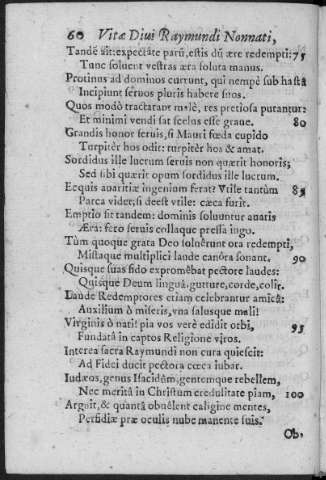 60 Vitæ Diui Raymundi Nonnati,
Tandē ait: expectāte parū, estis dū ære redempti: 75
Tunc soluent vestras æra soluta manus.
Protinus ad dominos currunt, qui nempè sub hastā
Incipiunt seruos pluris habere suos.
Quos modò tractarant malè, res pretiosa putantur:
Et minimi vendi fat scelus esse graue. 80
Grandis honor seruis, si Mauri fœda cupido
Turpitèr hos odit: turpitèr hos & amat.
Sordidus ille lucrum seruis non quærit honoris;
Sed sibi quærit opum sordidus ille lucrum.
Ecquis auaritiæ ingenium ferat? Vtile tantùm 85
Parca videt, si deest vtile: cæca furit.
Emptio fit tandem: dominis soluuntur auaris
Æra: fero seruis collaque pressa iugo.
Tùm quoque grata Deo soluêrunt ora redempti,
Mistaque multiplici laude canôra sonant. 90
Quisque suas fido exprомēbat pectore laudes:
Quisque Deum linguâ, gutture, corde, colit.
Laude Redemptores etiam celebrantur amicâ:
Auxilium ô miseris, vna salusque mali!
Virginis ô nati! pia vos verè edidit orbi, 95
Fundata in captos Religione viros.
Interea sacra Raymundi non cura quiescit:
Ad Fidei ducit pectora cæca iubar.
Iudæos, genus Isacidûm, gentemque rebellem,
Nec meritâ in Christum credulitate piam, 100
Arguit, & quantâ obuêlent caligine mentes,
Perfidiæ præ oculis nube manente suis.
Ob,